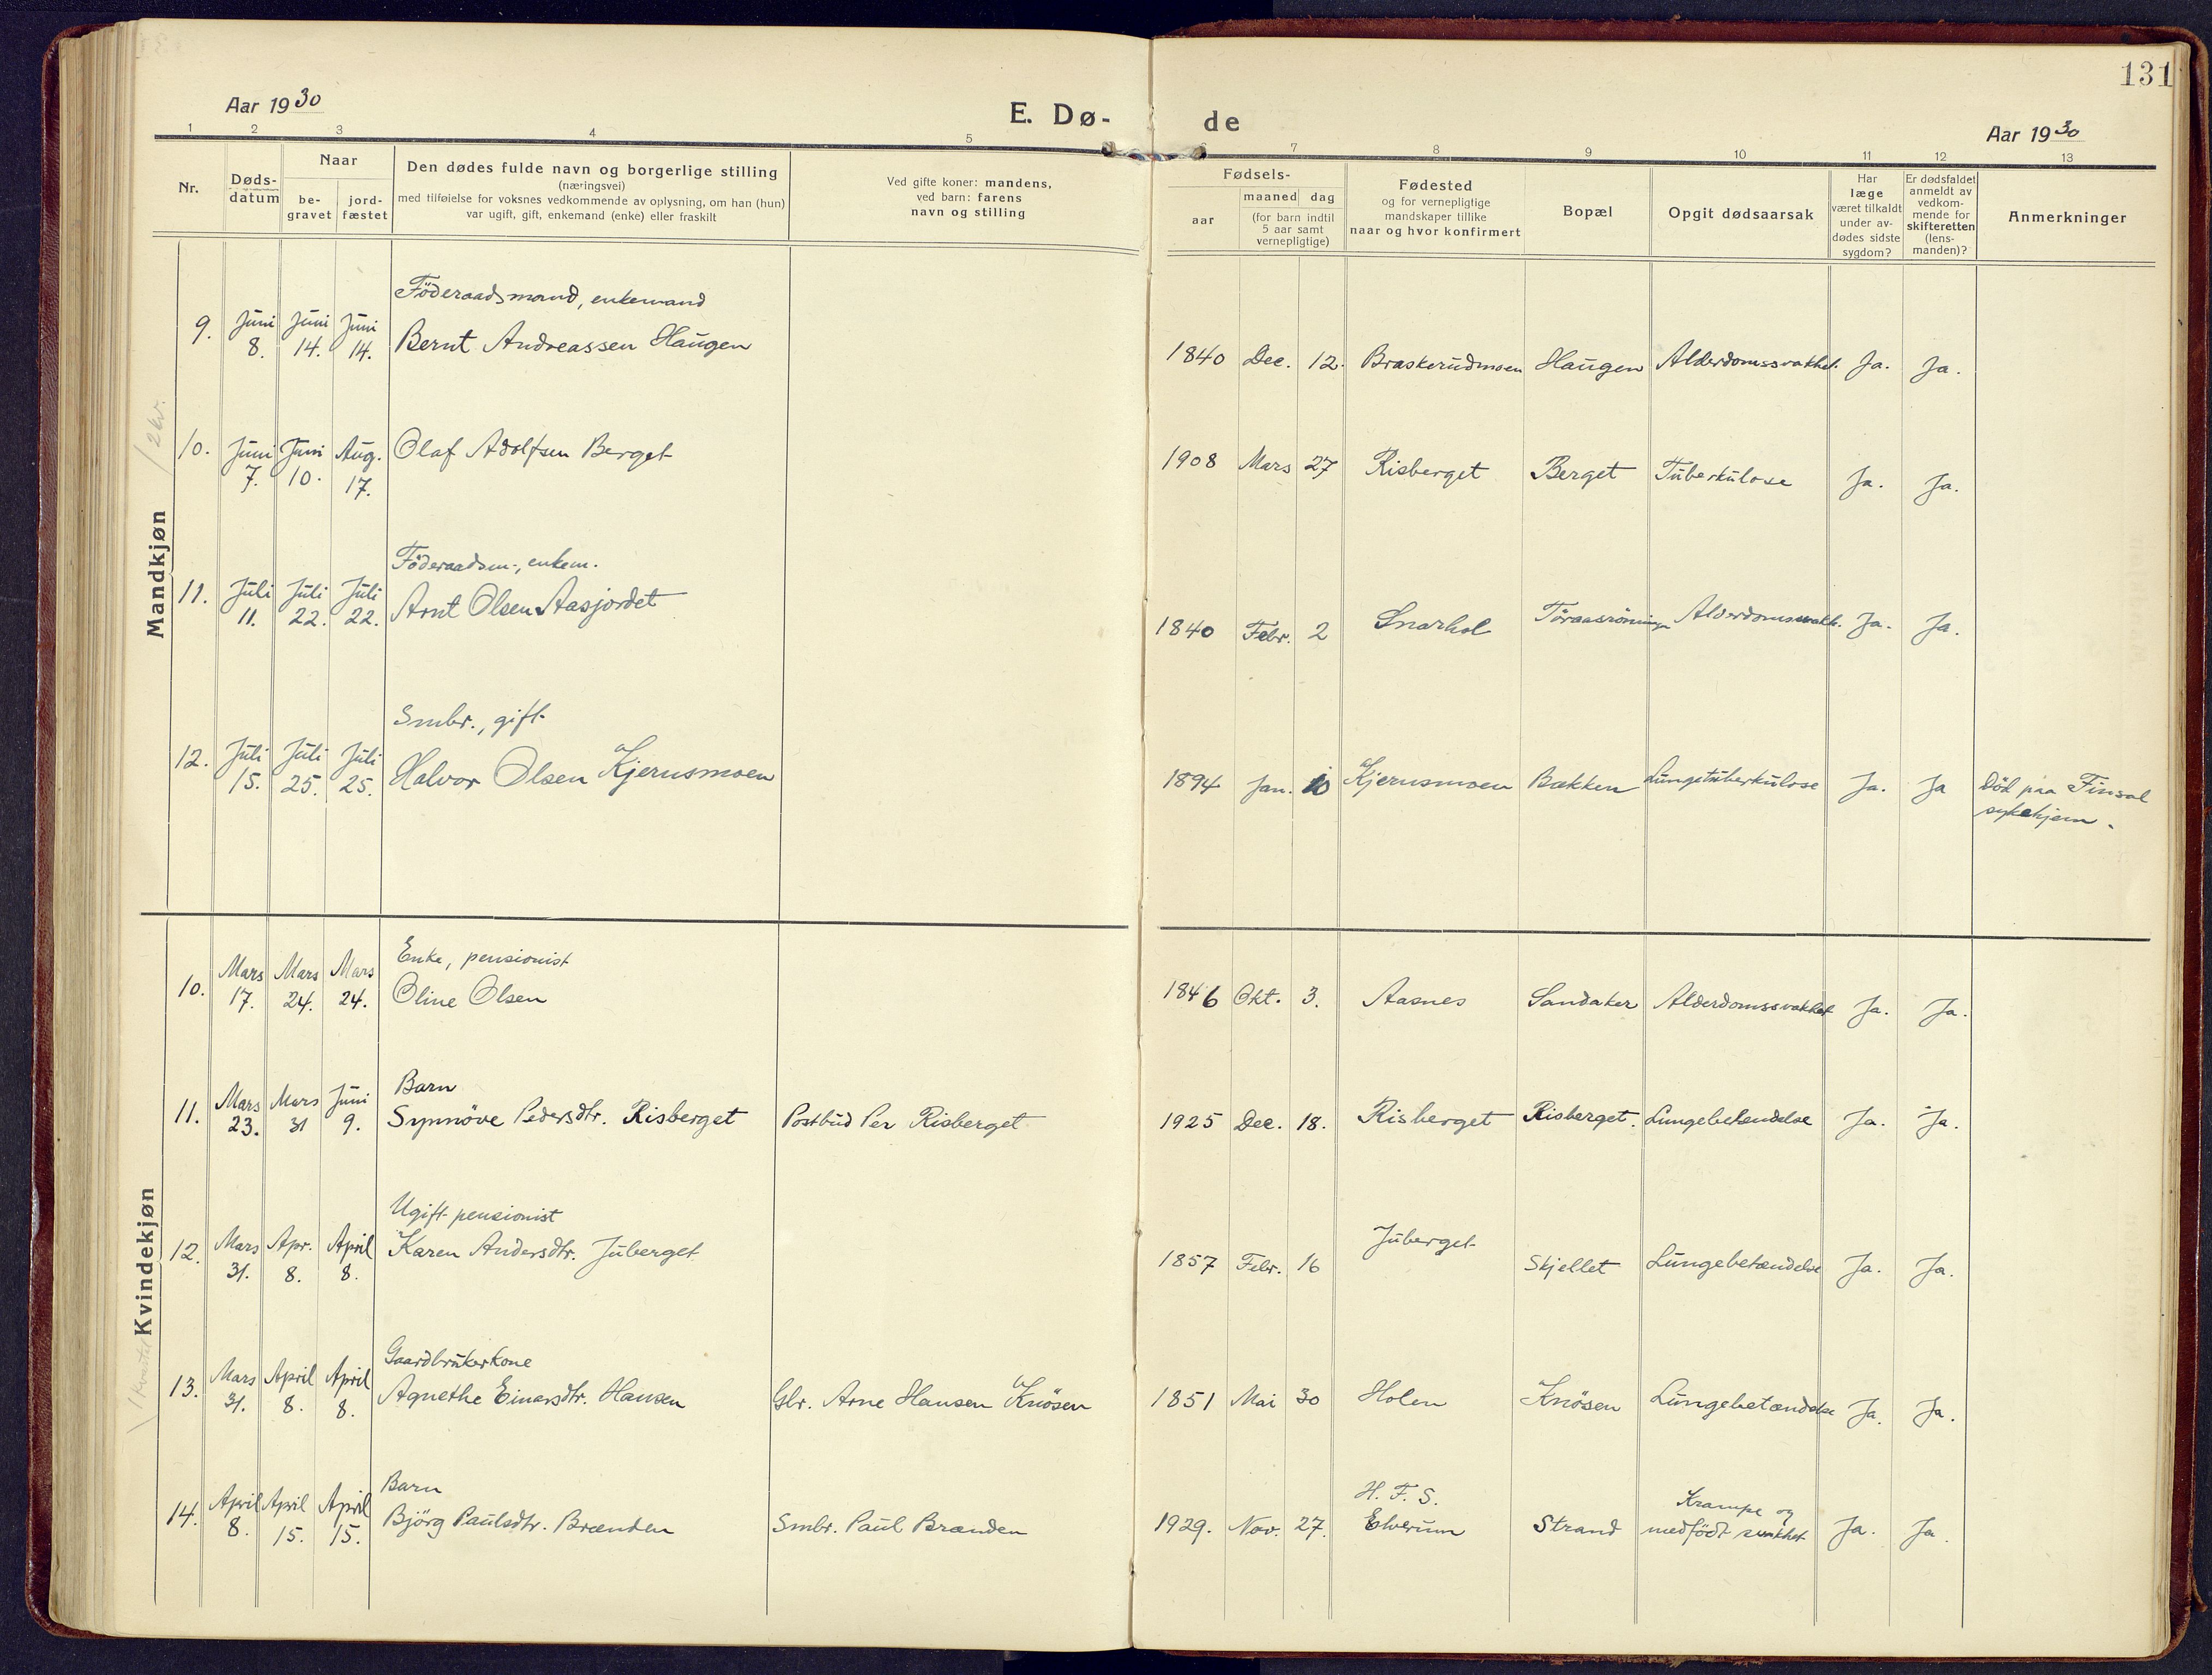 131
Aar 1930
E. Dø-
de
Aar 1930
1 2 3 4 5 6 7 8 9 10 11 12 13
Nr.
Døds-
datum
Naar
be-
gravet
jord-
fæstet
Den dødes fulde navn og borgerlige stilling
(næringsvei)
med tilføielse for voksnes vedkommende av oplysning, om han (hun)
var ugift, gift, enkemand (enke) eller fraskilt
Ved gifte koner: mandens,
ved barn: farens
navn og stilling
Fødsels-
aar
maaned dag
(for barn indtil
5 aar samt
vernepligtige)
Fødested
og for vernepligtige
mandskaper tillike
naar og hvor konfirmert
Bopæl
Opgit dødsaarsak
Har
læge
været tilkaldt
under av-
dødes sidste
sygdom?
Er dødsfaldet
anmeldt av
vedkom-
mende for
skifteretten
(lens-
manden)?
Anmerkninger
Mandkjøn
Föderaadsmand, enkemand
9. Juni 8. Juni 14. Juni 14. Bernt Andreassen Haugen 1840 Dec. 12. Braskerudmoen Haugen Alderdomssvakhet. Ja. Ja.
2 kv.
10. Juni 7. Juni 10. Aug. 17. Olaf Adolfsen Berget 1908 Mars 27 Risberget Berget Tuberkulose Ja. Ja.
Föderaadsm., enkem.
11. Juli 11. Juli 22. Juli 22. Arnt Olsen Aasjordet 1840 Febr. 2 Snarhol Alderdomssvakh. Ja. Ja.
Smbr., gift
12. Juli 15. Juli 25. Juli 25. Halvor Olsen Kjernsmoen 1894 Jan. 10 Kjernsmoen Bakken Lungetuberkulose Ja. Ja Död paa Finsal
sykehjem.
Kvindekjøn
Enke, pensionist
10. Mars 17. Mars 24. Mars 24. Oline Olsen 1846 Okt. 3. Aasnes Sandaker Alderdomssvakhet Ja. Ja.
Barn
11. Mars 23. Mars 31 Juni 9. Synnöve Pedersdtr. Risberget Postbud Per Risberget 1925 Dec. 18. Risberget Risberget. Lungebetendelse Ja. Ja.
Ugift pensionist
12. Mars 31. Apr. 8. April 8. Karen Andersdtr. Juberget 1857 Febr. 16 Juberget Skjellet Lungebetændelse Ja. Ja.
1 kvartal
Gaardbrukerkone
13. Mars 31. April 8. April 8. Agnethe Einarsdtr. Hansen Gbr. Arne Hansen Knösen 1851 Mai 30 Holen Knösen Lungebetændelse Ja. Ja.
Barn
H. F. S.
Krampe og
14. April 8. April 15. April 15. Björg Paulsdtr. Brænden Smbr. Paul Brænden 1929. Nov. 27. Elverum Strand medfödt svakhet Ja. Ja.